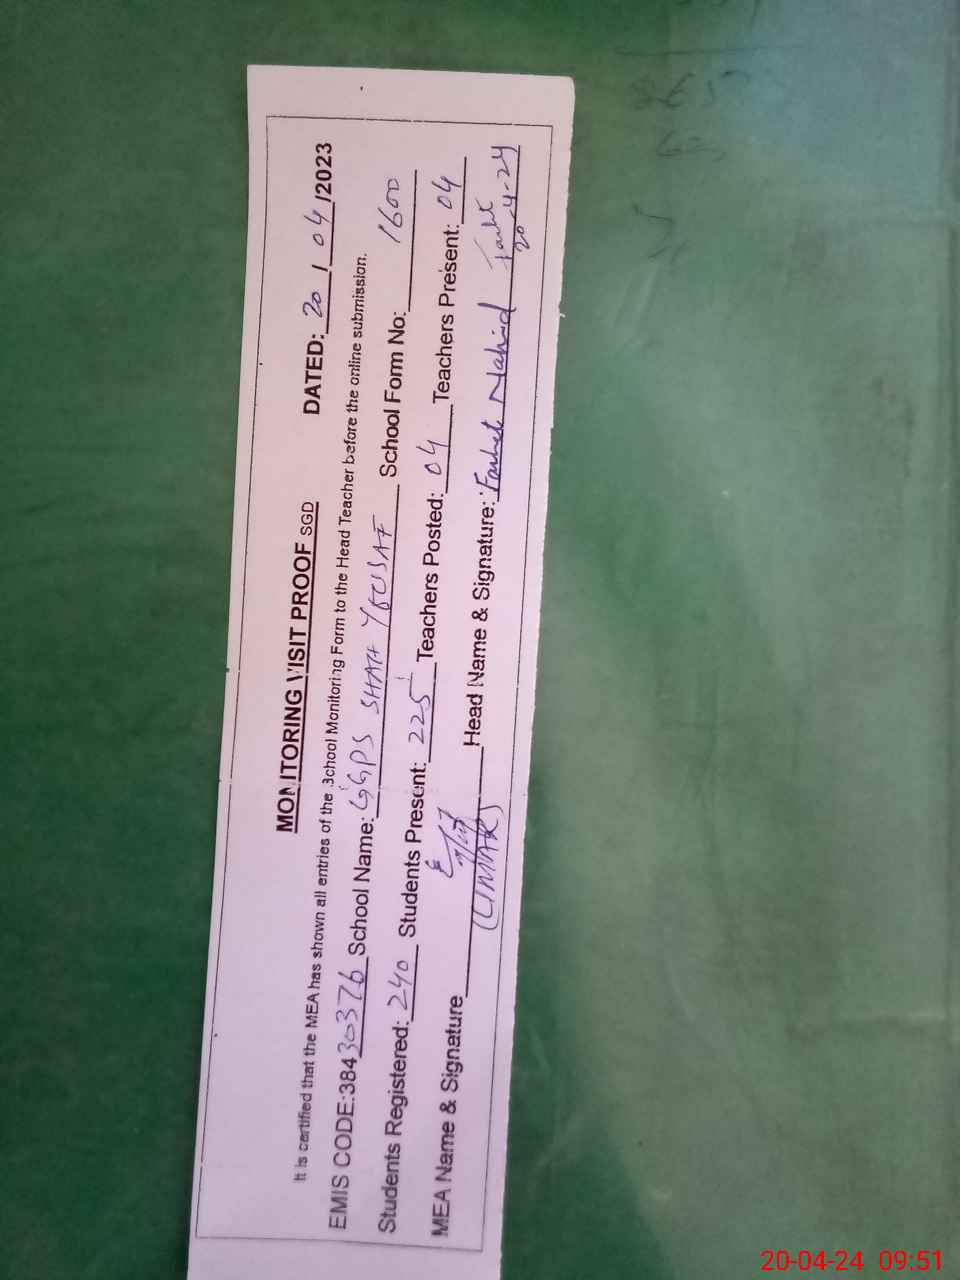 MONITORING VISIT PROOF SGD DATED: 20 / 04 /2023
It is certified that the MEA has shown all entries of the School Monitoring Form to the Head Teacher before the online submission.
EMIS CODE:38430376 School Name: GGPS SHAH YOUSAF School Form No: 1600
Students Registered: 240 Students Present: 225 Teachers Posted: 04 Teachers Present: 04
MEA Name & Signature (UMAR) Head Name & Signature: Farhat Nahid
20-4-24
20-04-24 09:51